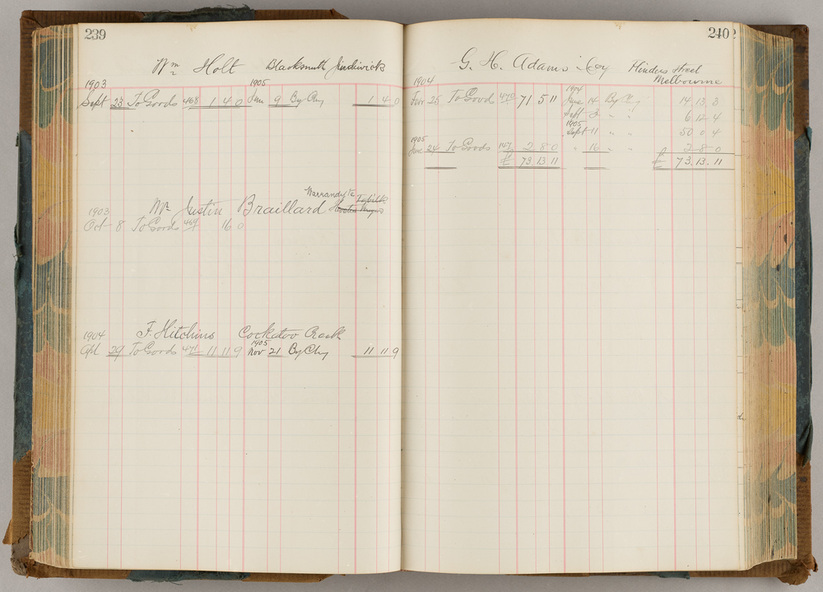 239
Wm Holt Blacksmith
1903 1905
Sept 23 To Goods 468 1 4 0 Jan 9 By Chq 1 4 0
Warrandyte
Mr Justin Braillard
1903
Oct 8 To Goods 16 0
F. Hitchins Cockatoo Creek
1904 1905
29 To Goods 11 11 9 Nov 21 By Chq 11 11 9
240
G. H. Adams & Coy Flinders Street
Melbourne
1904 1904
25 To Goods 71 5 11 June 14 By 14 13 3
Sept 6 12 4
1905
Sept 11 " " 50 0 4
1905
24 To Goods 147 2 8 0 " 16 " " 2 8 0
£ 73 13 11 £ 73. 13. 11